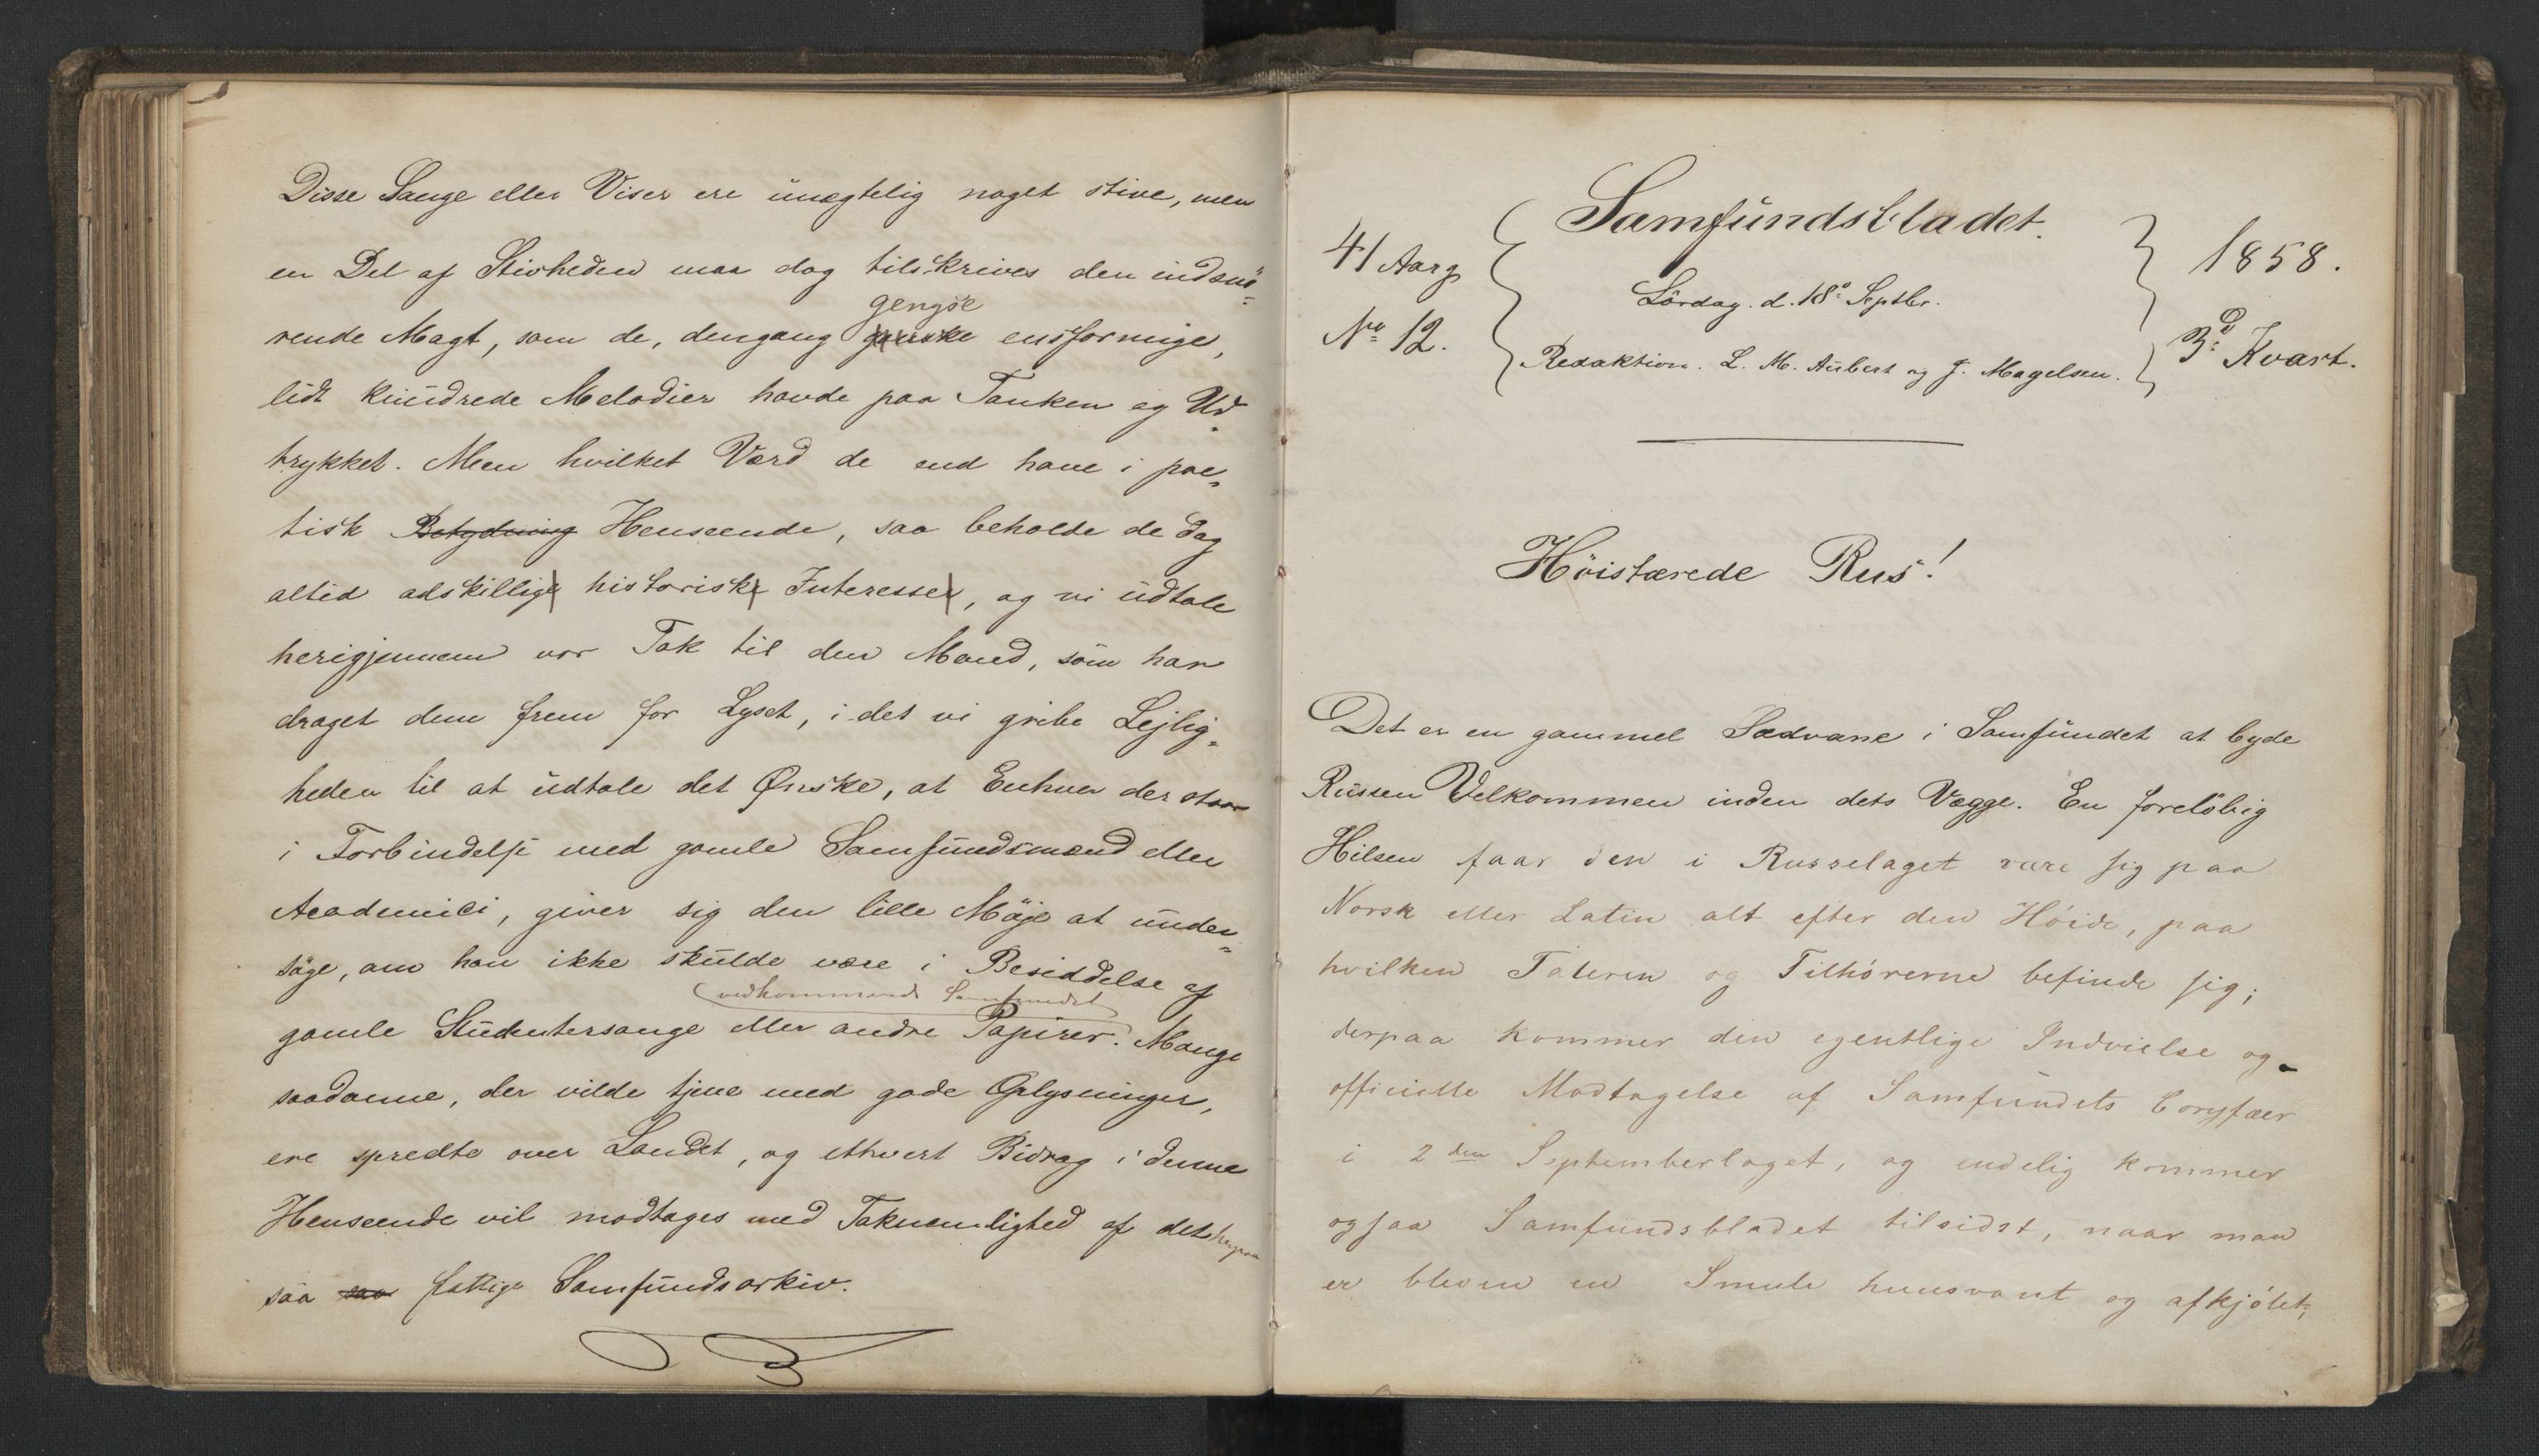 Disse Sange eller Viser ere unægtelig noget stive, men
en Del af Stivheden maa dog tilskrives den indsnö-
gengse
rende Magt, som de, dengang ganske ensformige,
lidt kundrede Melodier havde paa Tanken og Ud-
trykket. Men hvilket Værd de end have i poe-
tisk Betydning Henseende, saa beholde de dog
altid adskillige historiske Interesser, og vi udtale
herigjennem vor Tak til den Mand, som har
draget dem frem for Lyset, i det vi gribe Lejlig-
heden til at udtale det Ønske, at Enhver der staar
i Forbindelse med gamle Samfundsmænd eller
Academici, giver sig den lille Möje at under-
söge, om han ikke skulde være i Besiddelse af
(vedkommende Samfundet)
gamle Studentersange eller andre Papirer. Mange
saadanne, der vilde tjene med gode Oplysninger,
ere spredte over Landet, og ethvert Bidrag i denne
Henseende vil modtages med Taknemlighed af det herpaa
saa saa fattige Samfundsarkiv.
Samfundsbladet.
41 Aarg
1858.
Lördag. d. 18de Septbr.
No 12.
3d Kvart.
Redaktion. L. M. Aubert og J. Magelsen.
Höistærede Rus!
Det er en gammel Sædvane i Samfundet at byde
Russen Velkommen inden dets Vægge. En forelöbig
Hilsen faar den i Russelaget være sig paa
Norsk eller Latin alt efter den Höide, paa
hvilken Taleren og Tilhörerne befinde sig;
derpaa kommer den egentlige Indvielse og
officielle Modtagelse af Samfundets Coryfæer
i 2den Septemberlaget, og endelig kommer
ogsaa Samfundsbladet tilsidst, naar man
er bleven en Smule huusvant og afkjölet;